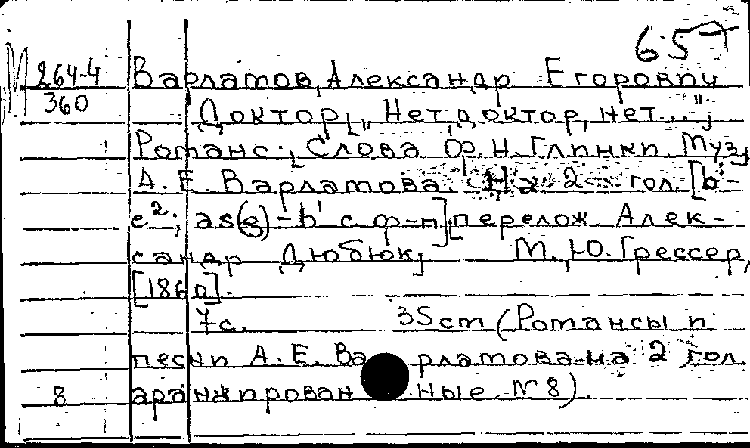 657
М 264-4 Варламов, Александр Егорович
360 Доктор, [„Нет доктор, нет..."];
Романс. Слова Ф. Н. Глинки. Муз.
А. Е. Варламова. На 2 гол. [b'-
e²; as(g)-b' с ф-п] [перелож. Алек-
сандр Дюбюк; М., Ю. Грессер,
[186п].
7с. 35cm (Романсы и
песни А. Е. Варламова на 2 гол.
8 аранжированные № 8).